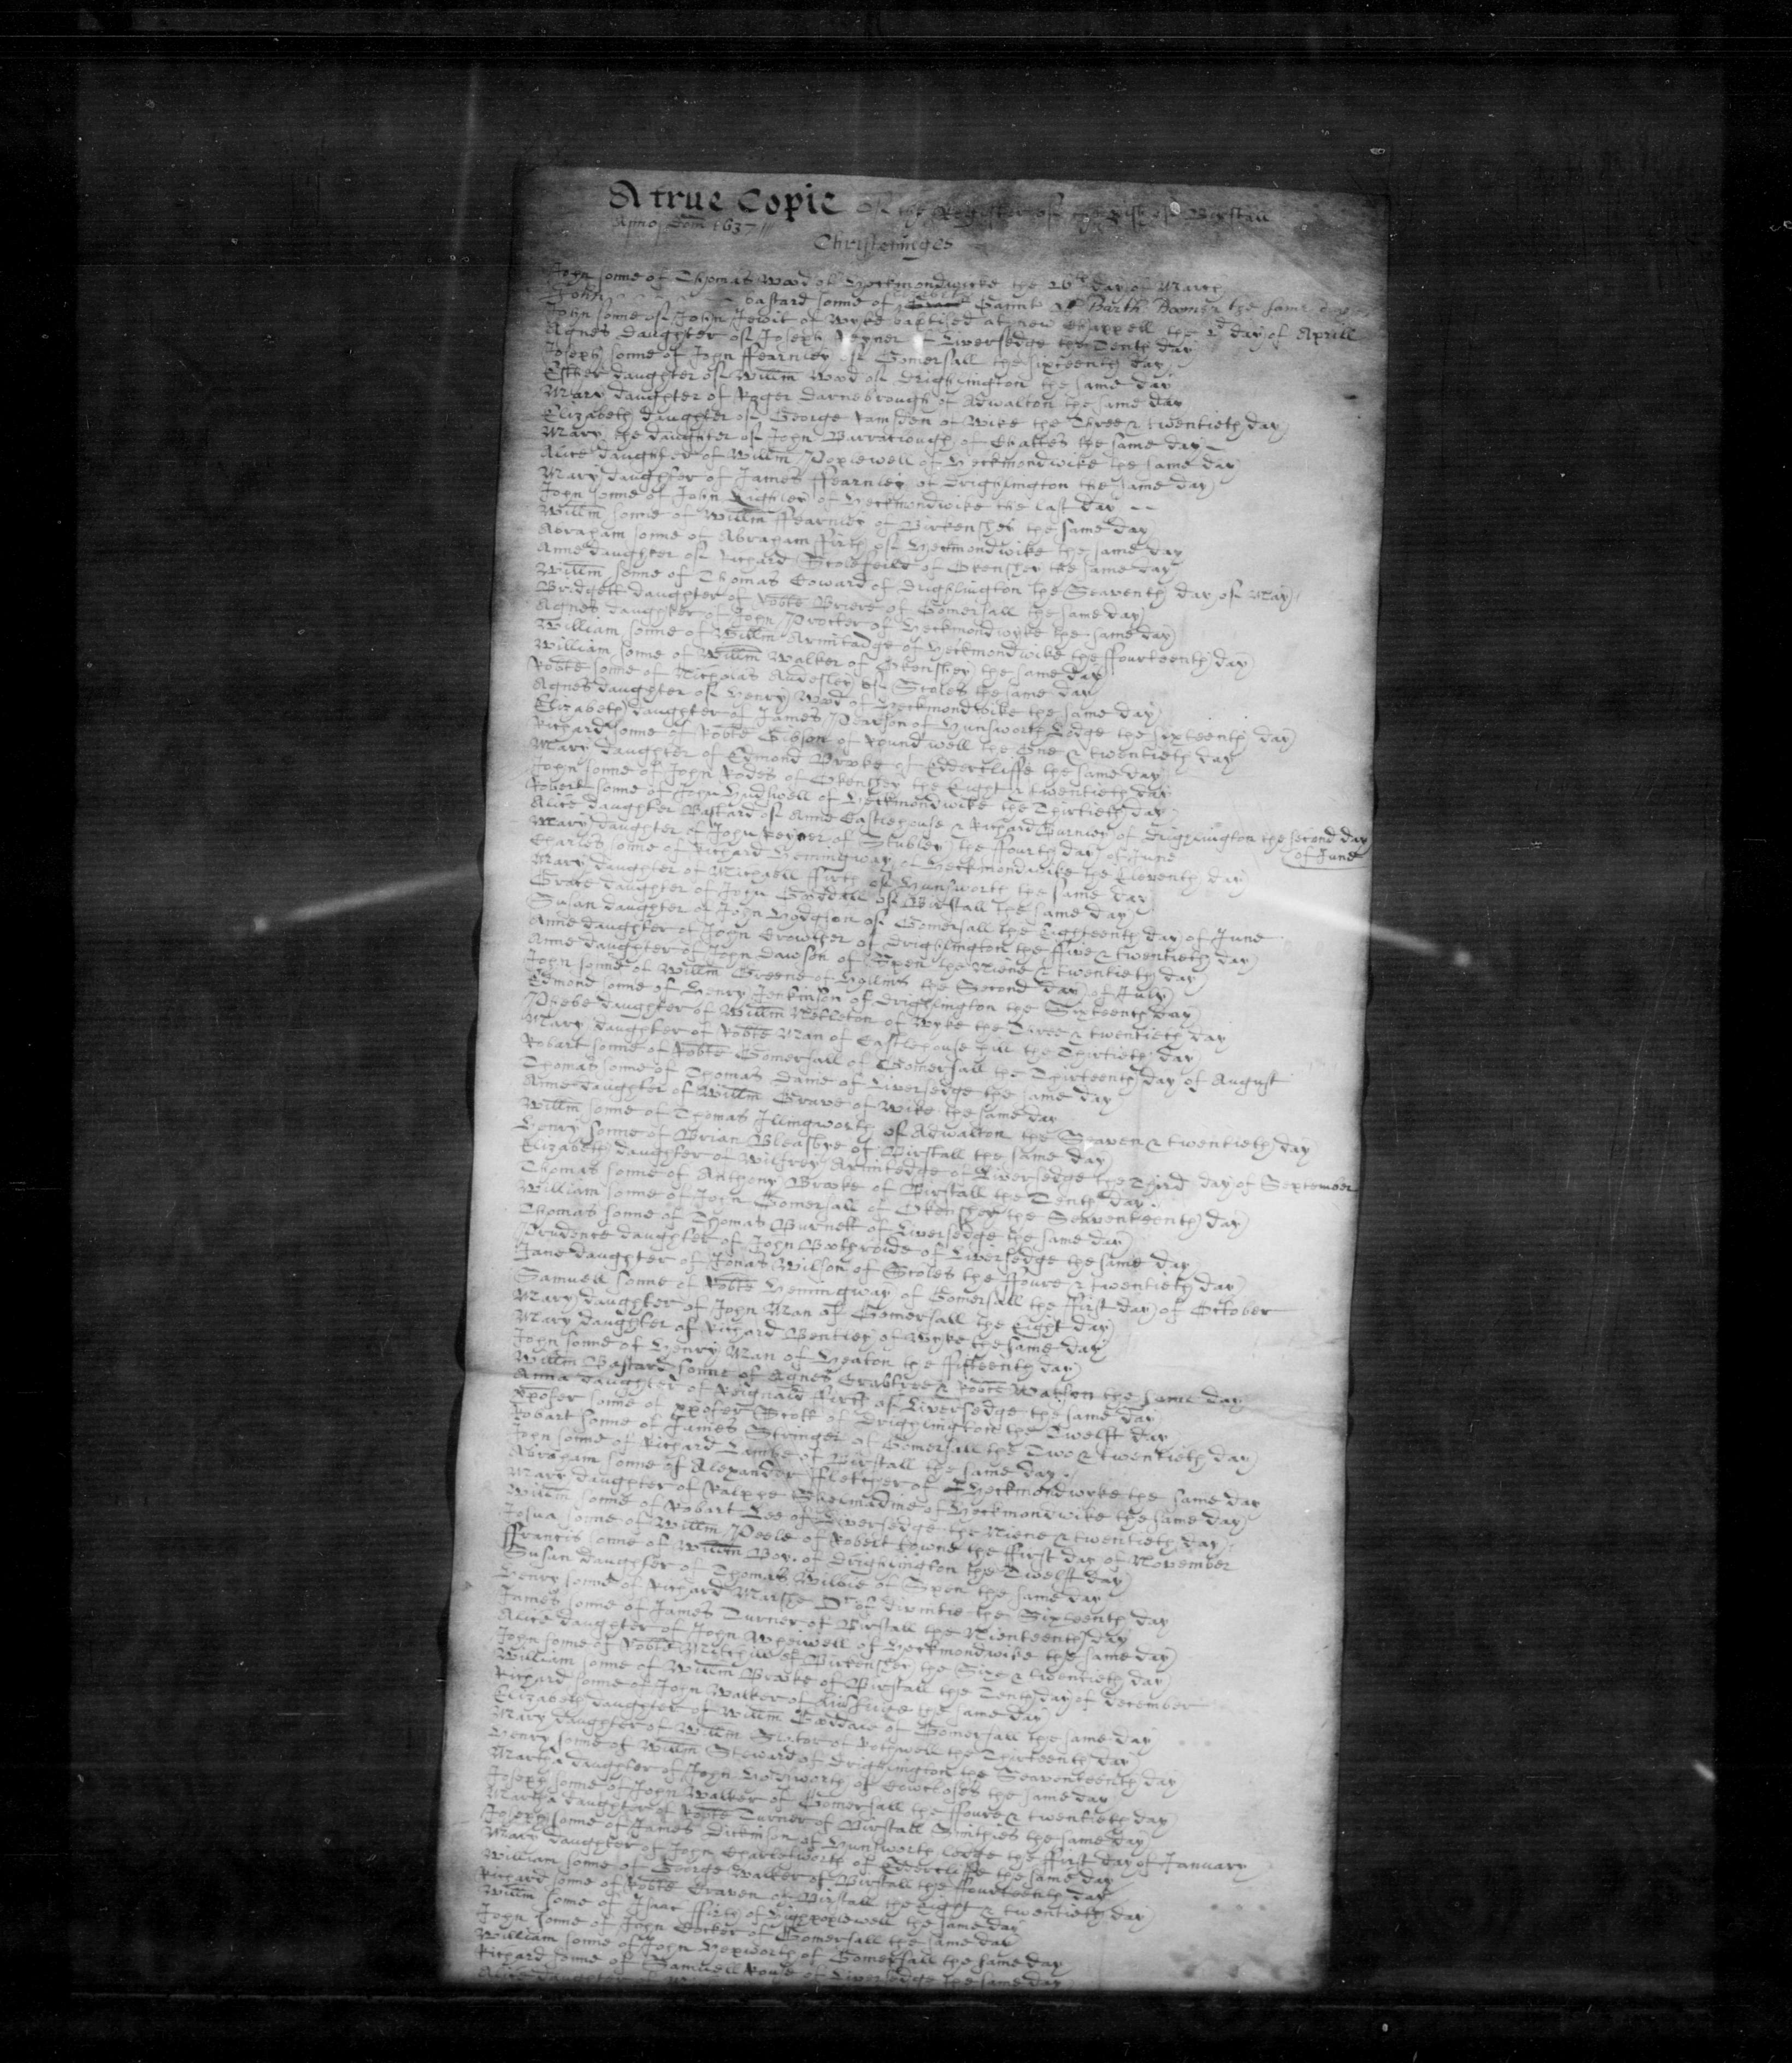 A true Copie Of the Register of the pish of Birstall
Anno Dom 1637
Christenings
John sonne of Thomas Wood of Heckmondwicke the 26th day of March
John bastard sonne of Barth: Boomer the same day
John sonne of John Jewit of Wyke baptised at new Chappell the 2d day of Aprill
Agnes daughter of Joseph Reyner of Liversedge the Tenth day
Joseph sonne of John ffearnley of Gomersall the sixteenth day
Esther daughter of Willm Wood of Drighlington the same day
Mary daughter of Roger Darnebrough of Adwalton the same day
Elizabeth daughter of George Ramsden of Wike the Three & twentieth day
Mary the daughter of John Barraclough of the same day
Alice daughter of Willm Poplewell of Heckmondwike the same day
Mary daughter of James ffearnley of Drighlington the same day
John sonne of John Lighley of Heckmondwike the last day
Willm sonne of Willm ffearnley of Birkenshey the same day
Abraham sonne of Abraham ffirth of Heckmondwike the same day
Anne daughter of Richard Scolefeild of Okenshey the same day
Willm sonne of Thomas Coward of Drighlington the Seaventh day of May
Bridgett daughter of Robte Briere of Gomersall the same day
Agnes daughter of John Procter of Heckmondwyke the same day
William sonne of Willm Armitadge of Heckmondwike the ffourteenth day
William sonne of Willm Walker of Okenshey the same day
Robte sonne of Nicholas Audesley of Scoles the same day
Agnes daughter of Henry Wood of Heckmondwike the same day
Elizabeth daughter of James Pearson of Hunsworth Lodge the sixteenth day
Richard sonne of Robte Gibson of Roundwell the One & twentieth day
Mary daughter of Edmond Brooke of Eddercliffe the same day
John sonne of John Rodes of Okenshey the Eight & twentieth day
Robert sonne of John Hudswell of Heckmondwike the Thirtieth day
Alice daughter Bastard of Anne Castlehouse & Richard Burnley of Drighlington the second day
of June
Mary daughter of John Reyner of Stubley the ffourth day of June
Charles sonne of Richard Hemingway of Heckmondwike the Eleventh day
Mary daughter of Michaell ffirth of Hunsworth the same day
Grace daughter of John Gooddall of Birstall the same day
Susan daughter of John Hodgson of Gomersall the Eighteenth day of June
Anne daughter of John Crowther of Drighlington the ffive & twentieth day
Anne daughter of John Dawson of Spen the Niene & twentieth day
John sonne of Willm Greene of Hollins the Second day of July
Edmond sonne of Henry Jenkinson of Drighlington the Sixteenth day
Phebe daughter of Willm Nettleton of Wyke the Three & twentieth day
Mary daughter of Robte Man of Castlehouse hill the Thirtieth day
Robart sonne of Robte Gomersall of Gomersall the Thirteenth day of August
Thomas sonne of Thomas Dame of Liversedge the same day
Anne daughter of Willm Grave of Wike the same day
Willm sonne of Thomas Illingworth of Adwalton the Seaven & twentieth day
Henry sonne of Brian Bleasbye of Birstall the same day
Elizabeth daughter of Wilfrey Armitedge of Liversedge the Third day of September
Thomas sonne of Anthony Brooke of Birstall the Tenth day
William sonne of John Gomersall of Okenshey the Seaventeenth day
Thomas sonne of Thomas Burnett of Liversedge the same day
Prudence daughter of John Bothroide of Liversedge the same day
Jane daughter of Jonas Wilson of Scoles the ffoure & twentieth day
Samuell sonne of Robte Hemingway of Gomersall the ffirst day of October
Mary daughter of John Man of Gomersall the Eight day
Mary daughter of Richard Bentley of Wyke the same day
John sonne of Henry Man of Heaton the fifteenth day
Willm Bastard sonne of Agnes Crabtree & Robte Watson the same day
Anna daughter of Reignald ffirth of Liversedge the same day
Xpofer sonne of Xpofer Scott of Drighlington the Twelft day
Robart sonne of James Stringer of Gomersall the Two & twentieth day
John sonne of Richard of Birstall the same day
Abraham sonne of Alexander ffletcher of Heckmondwyke the same day
Mary daughter of Ralphe Shelmadine of Heckmondwike the same day
Willm sonne of Robart Lee of Liversedge the Niene & twentieth day
Josua sonne of Willm Peele of Robert towne the ffirst day of November
ffrancis sonne of Willm Boy. of Drighlington the Twelft day
Susan daughter of Thomas Wilbie of Spen the same day
Henry sonne of Richard Marshe Dr of divinitie the Sixteenth day
James sonne of James Turner of Birstall the Nienteenth day
Alice daughter of John Wheiwell of Heckmondwike the same day
John sonne of Robte Mitchill of Birkenshey the Sixe & twentieth day
William sonne of Willm Brooke of Birstall the Tenth day of December
Richard sonne of John Walker of the same day
Elizabeth daughter of Willm Gooddale of Gomersall the same day
Mary daughter of Willm Slator of Rothwell the Thirteenth day
Henry sonne of Willm Steward of Drighlington the Seaventeenth day
Martha daughter of John Holdsworth of Cowcloses the same day
Joseph sonne of John Walker of Gomersall the ffoure & twentieth day
Martha daughter of Robte Turner of Birstall Smithies the same day
Joseph sonne of James Dickinson of Hunsworth lodge the ffirst day of January
Mary daughter of John Charlesworth of Eddercliffe the same day
William sonne of George Walker of Birstall the ffourteenth day
Richard sonne of Robte Craven of Birstall the Eight & twentieth day
Willm sonne of Isaac ffirth of Highpoplewell the same day
John sonne of John Cocker of Gomersall the same day
William sonne of John Hepworth of Gomersall the same day
Richard sonne of Samuell of Liversedge the same day
Alice daughter